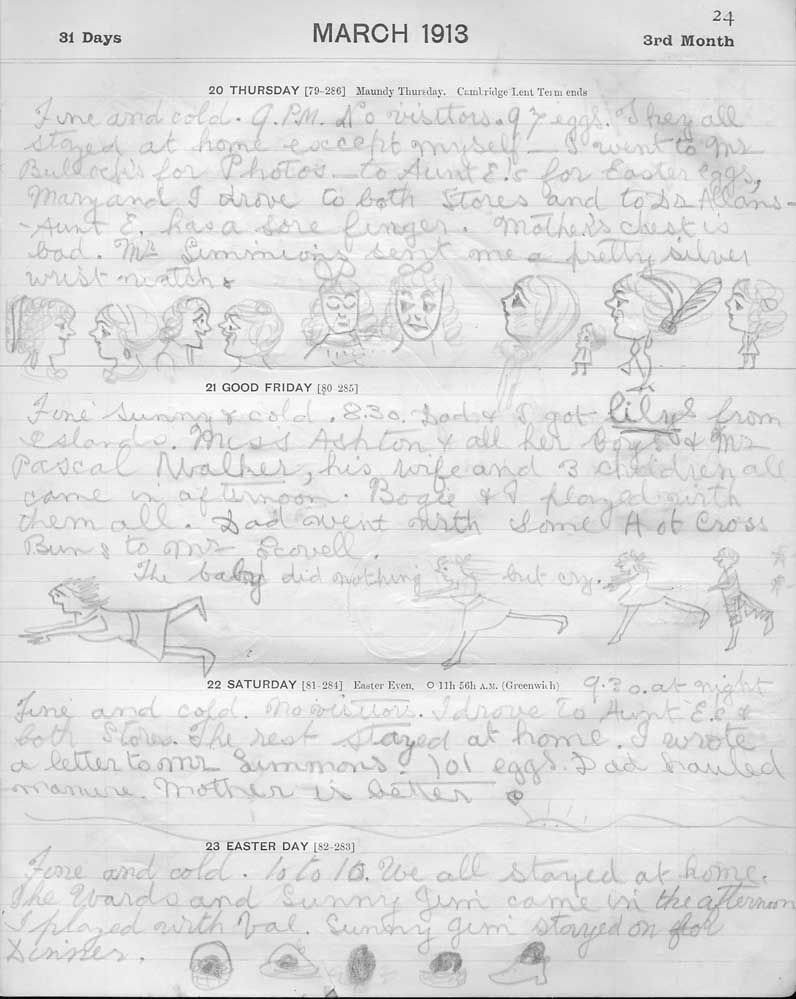 24
31 Days
MARCH 1913
3rd Month
20 THURSDAY [79-286] Maundy Thursday. Cambridge Lent Term ends
Fine and cold. 9.P.M. No visitors. 97 eggs. They all
stayed at home except myself - I went to Mr
Bullock's for Photos - to Aunt E.'s for Easter eggs,
Mary and I drove to both Stores and to Dr Allans -
- Aunt E. has a sore finger. Mother's chest is
bad. Mr Simmions sent me a pretty silver
wrist watch
21 GOOD FRIDAY [80-285]
Fine Sunny & cold. 8.30. Dad & I got lilys from
Islands. Miss Ashton & all her boys & Mr
Pascal Walker, his wife and 3 children all
came in afternoon. Bogie & I played with
them all. Dad went with some Hot Cross
Buns to Mr Scovell.
The baby did nothing but cry.
22 SATURDAY [81-284] Easter Even. O 11h 56h A.M. (Greenwich)
9.30. at night
Fine and cold. No visitors. I drove to Aunt E.s &
both Stores. The rest stayed at home. I wrote
a letter to Mr Simmons. 101 eggs. Dad hauled
manure. Mother is better
23 EASTER DAY [82-283]
Fine and cold. 10 to 10. We all stayed at home.
The Wards and Sunny Jim came in the afternoon
I played with Val. Sunny Jim stayed on for
Dinner.